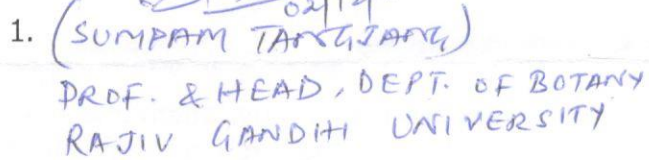 02/14
1. (SUMPAM TANGJANG)
PROF. & HEAD, DEPT. OF BOTANY
RAJIV GANDHI UNIVERSITY